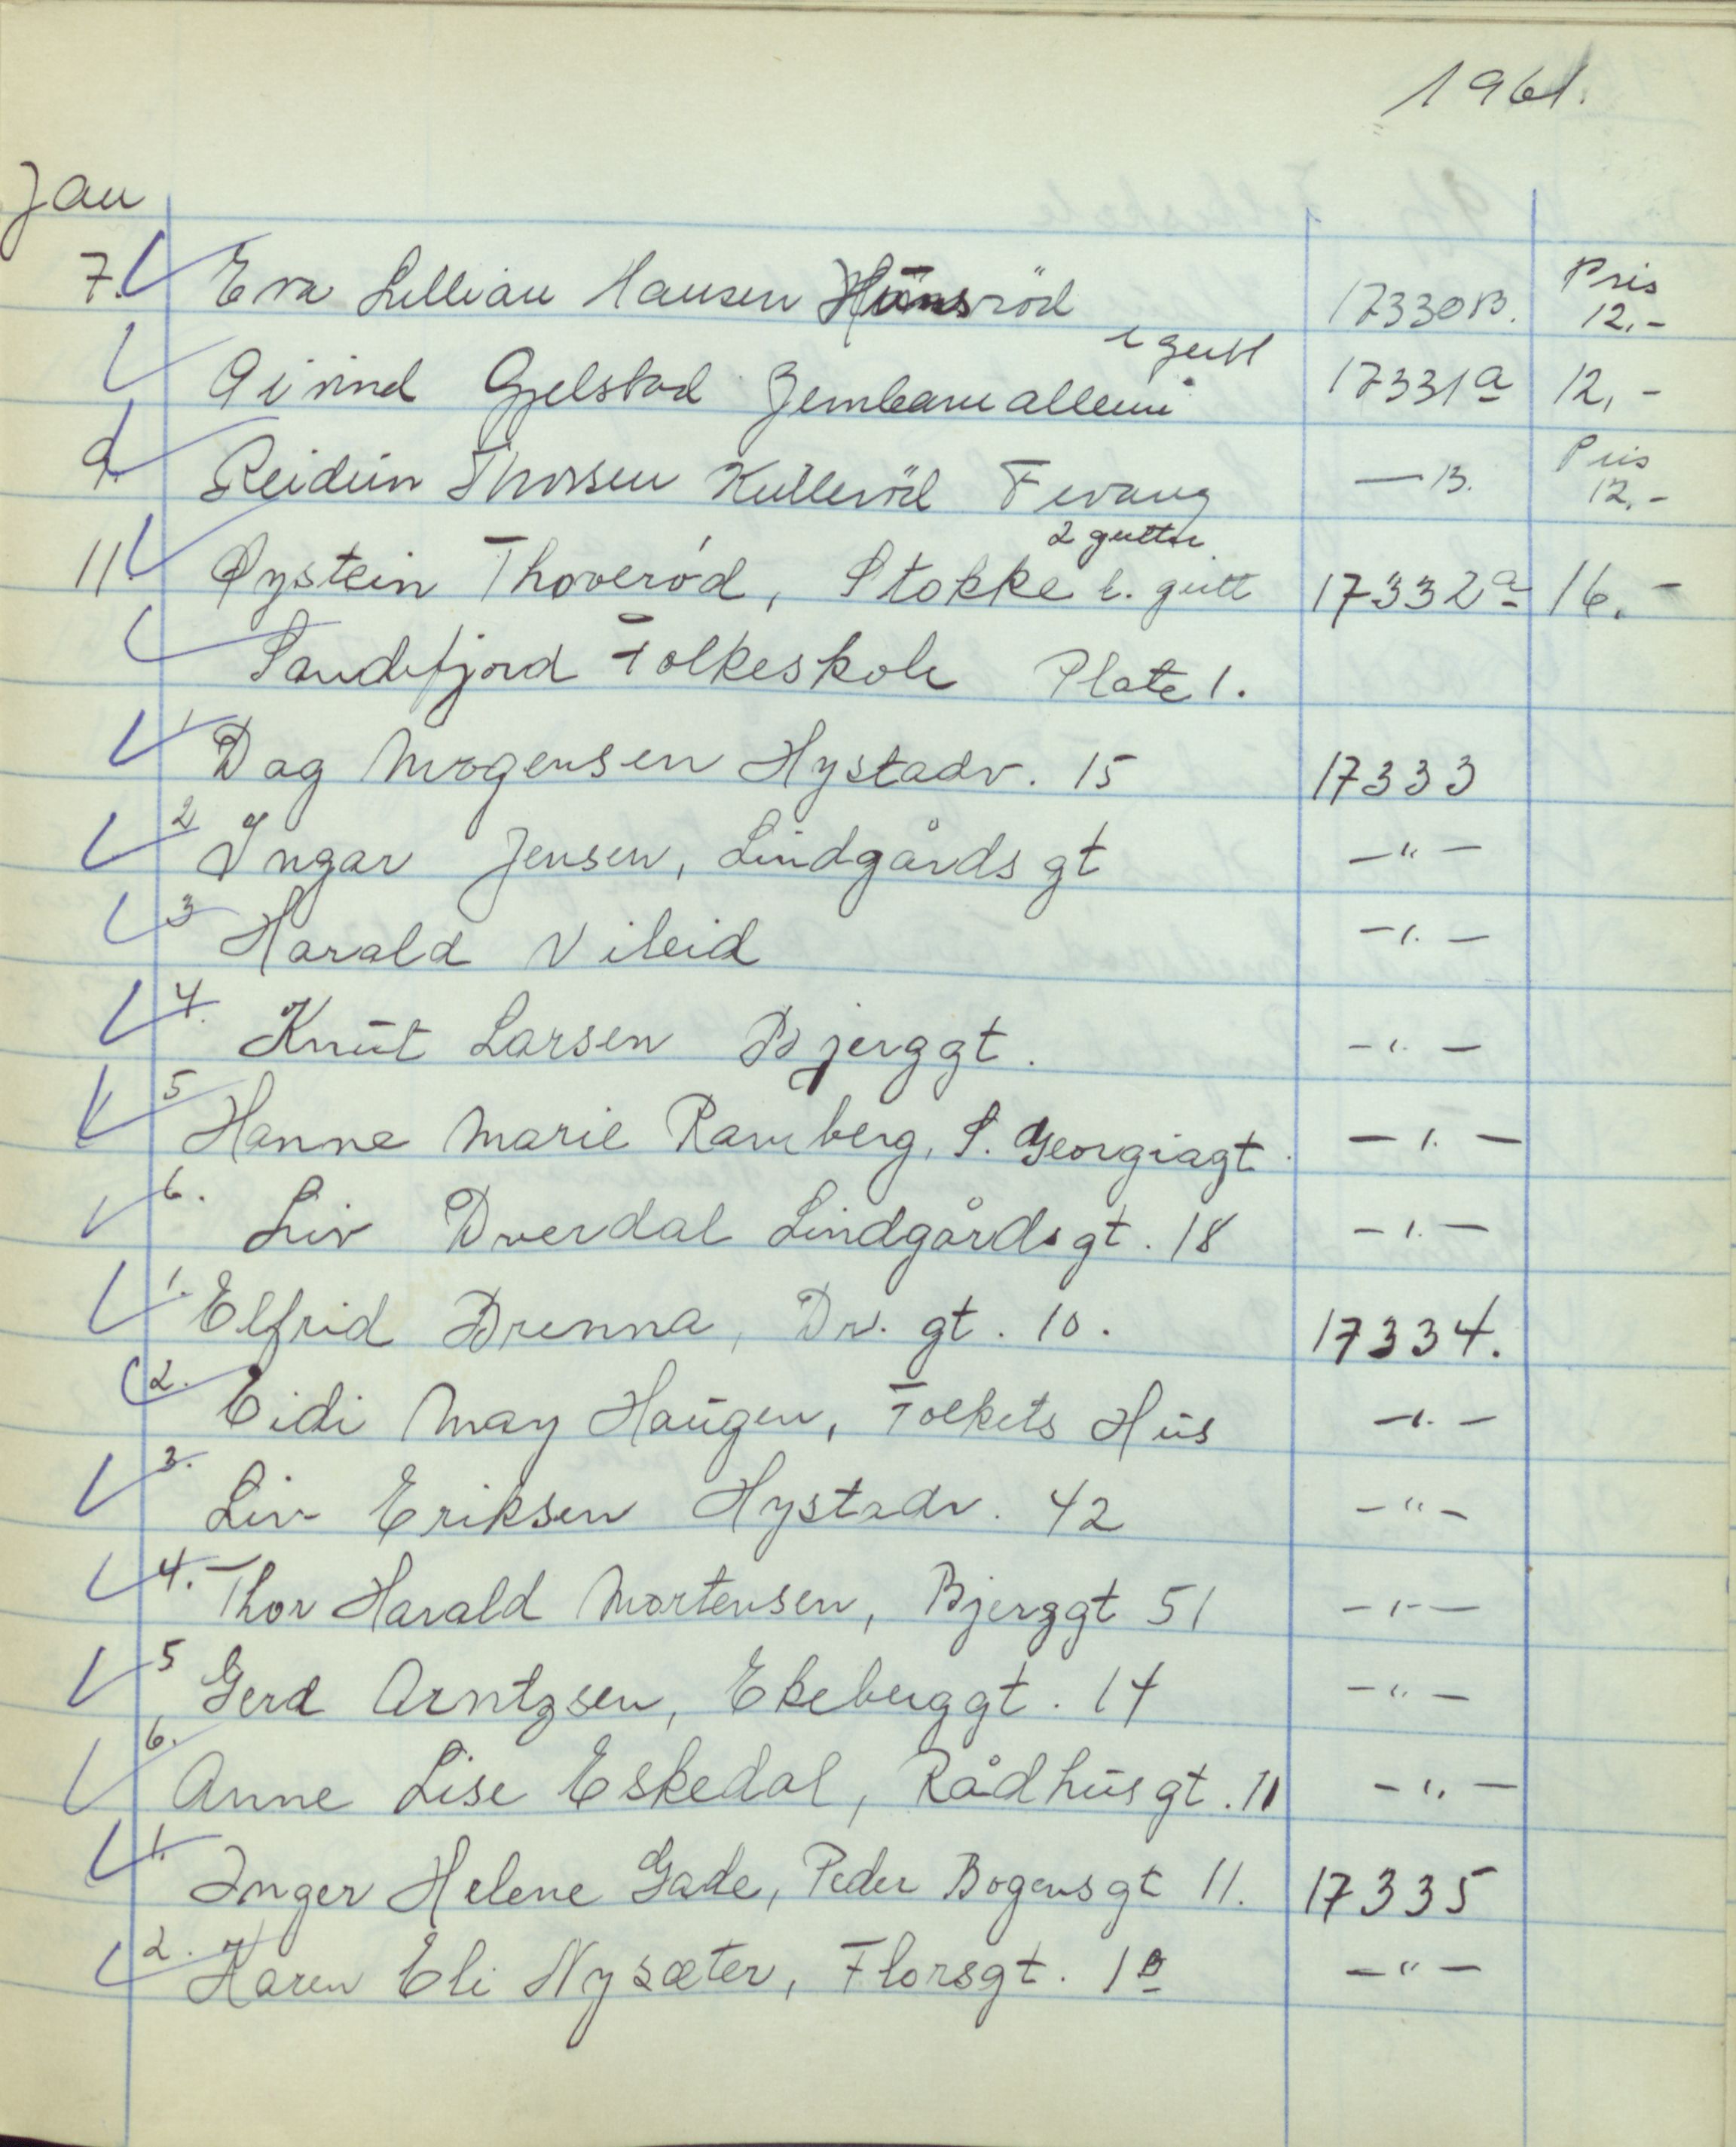 1961.
Jan
7. Eva Lillian Hansen Hunsröd 17330B. Pris 12,-
1 gutt
Eivind Gjelstad Jernbanealleen 17331a 12,-
9. Reidun Thorsen Kulleröd Fevang —B. Pris 12,-
2 gutter
11. Øystein Thoveröd, Stokke b. gutt 17332a 16,-
Sandefjord Folkeskole Plate 1.
1 Dag Mogensen Hystadv. 15 17333
2 Ingar Jensen, Lindgårdsgt —"—
3 Harald Vileid —"—
4. Knut Larsen Bjerggt. —"—
5 Hanne Marie Ramberg, S. Georgiagt. —"—
6. Liv Dverdal Lindgårdsgt. 18 —"—
1. Elfrid Brenna, Dr. gt. 10. 17334.
2. Eidi May Haugen, Folkets Hus —"—
3. Liv Eriksen Hystadv. 42 —"—
4. Thor Harald Mortensen, Bjerggt 51 —"—
5 Gerd Arntzsen, Ekeberggt. 14 —"—
6. Anne Lise Eskedal, Rådhusgt. 11 —"—
1. Inger Helene Gade, Peder Bogensgt 11. 17335
2. Karen Eli Nysæter, Florsgt. 1B —"—